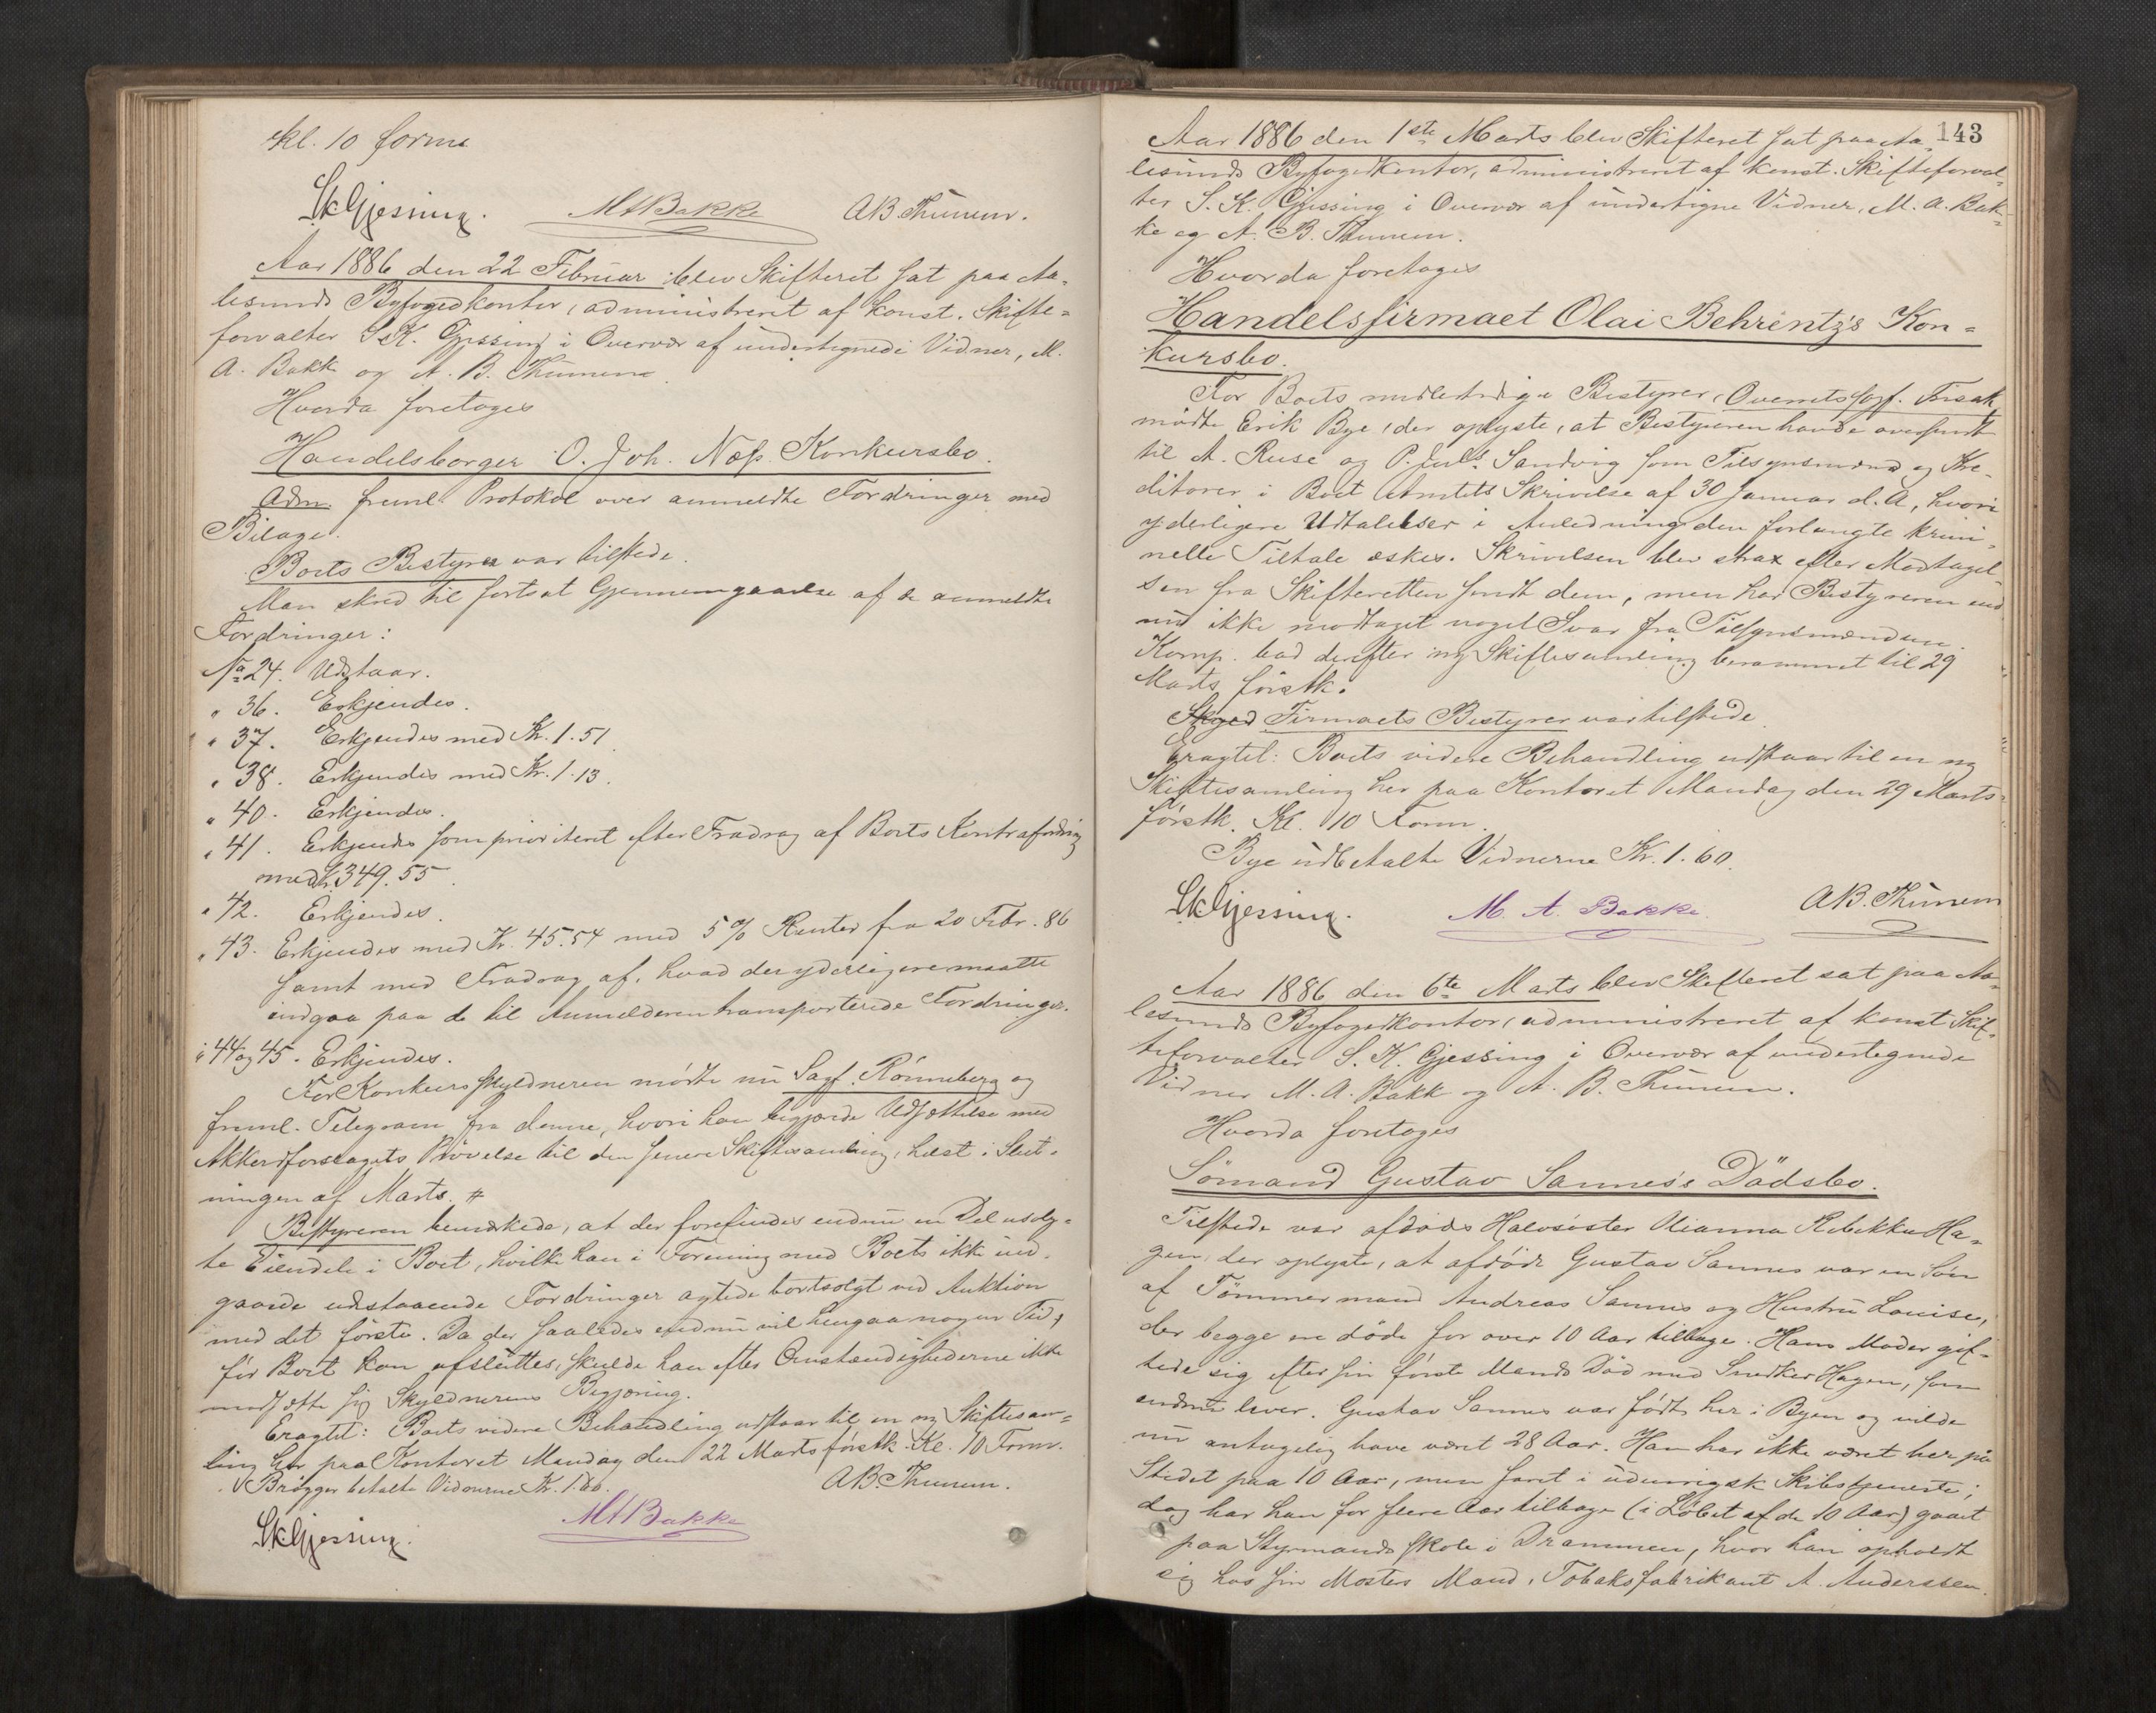 kl. 10 form.
SKGjessing. MABakke AB.Thunem.
Aar 1886 den 22 Februar blev Skifteret sat paa Aa-
lesunds Byfogedkontor, administreret af konst. Skifte-
forvalter S.K. Gjessing i Overvær af undertegnede Vidner, M.
A. Bakke og A. B. Thunem.
Hvorda foretoges
Handelsborger O. Joh. Næss Konkursbo.
Adm. freml. Protokol over anmeldte Fordringer med
Bilage.
Boets Bestyrer var tilstede.
Man skred til fortsat Gjennemgaaelse af de anmeldte
Fordringer:
No 24. Udstaar.
" 36. Erkjendes.
" 37. Erkjendes med Kr. 1.51.
" 38. Erkjendes med Kr. 1.13.
" 40. Erkjendes.
" 41. Erkjendes som prioriteret efter Fradrag af Boets Kontrafordring
med Kr. 349.55.
" 42. Erkjendes.
" 43. Erkjendes med Kr. 45.54 med 5% Renter fra 20 Febr. 86
samt med Fradrag af, hvad der yderligere maatte
indgaa paa de til Anmelderen transporterede Fordringer.
" 44 og 45. Erkjendes.
For Konkursskyldneren mødte nu Sagf. Rönneberg og
freml. Telegram fra denne, hvori han begjærede Udsættelse med
Akkordforslagets Prøvelse til den senere Skiftesamling, helst i Slut-
ningen af Marts. #
Bestyreren bemærkede, at der forefindes endnu en Del usolg-
te Eiendele i Boet, hvilke han i Forening med Boets ikke ind-
gaaede udstaaende Fordringer agtede bortsolgt ved Auktion
med det første. Da der saaledes endnu vil hengaa nogen Tid,
før Boet kan afsluttes, skulde han efter Omstændighederne ikke
modsætte sig Skyldnerens Begjæring.
Eragtet: Boets videre Behandling udstaar til en ny Skiftesam-
ling her paa Kontoret Mandag den 22 Marts førstk. Kl. 10 Form.
Brøgger betalte Vidnerne Kr. 1.60.
AB.Thunem.
SKGjessing. MABakke
143
Aar 1886 den 1ste Marts blev Skifteret sat paa Aa-
lesunds Byfogedkontor, administreret af konst. Skifteforval-
ter S. K. Gjessing i Overvær af undertigne Vidner, M. A. Bak-
ke og A. B. Thunem.
Hvorda foretoges
Handelsfirmaet Olai Behrentz's Kon-
kursbo.
For Boets midlertidige Bestyrer, Overretssagf.
mødte Erik Bye, der oplyste, at Bestyreren havde oversendt
til A. Ruse og P. Jul. Sandvig som Tilsynsmænd og Kre-
ditorer i Boet Amtets Skrivelse af 30 Januar d. A, hvori
yderligere Udtalelser i Anledning den forlangte krimi-
nelle Tiltale æskes. Skrivelsen blev strax efter Modtagel-
sen fra Skifteretten sendt dem, men har Bestyreren end
nu ikke modtaget noget Svar fra Tilsynsmændene.
Komp. bad derefter ny Skiftesamling berammet til 29
Marts førstk.
Firmaets Bestyrer var tilstede.
Eragtet: Boets videre Behandling udstaar til en ny
Skiftesamling her paa Kontoret Mandag den 29 Marts
førstk. Kl. 10 Form.
Bye udbetalte Vidnerne Kr. 1.60.
SKGjessing. M. A. Bakke. AB.Thunem
Aar 1886 den 6te Marts blev Skifteret sat paa Aa-
lesunds Byfogedkontor, administreret af konst Skif-
teforvalter S. K. Gjessing i Overvær af undertegnede
Vidner M. A. Bakk og A. B. Thunem.
Hvorda foretoges
Sömand Gustav Sannes's Dödsbo.
Tilstede var afdødes Halvsøster Rebekka Ha-
gen, der oplyste, at afdøde Gustav Sannes var en Søn
af Tømmermand Andreas Sannes og Hustru Louise,
der begge ere døde for over 10 Aar tilbage. Hans Moder gif-
tede sig efter sin første Mands Død med Snedker Hagen, som
endnu lever. Gustav Sannes var født her i Byen og vilde
nu antagelig have været 28 Aar. Han har ikke været her på
Stedet paa 10 Aar, men faret i udenrigsk Skibstjeneste;
dog har han for flere Aar tilbage (i Løbet af de 10 Aar) gaaet
paa Styrmandsskole i Drammen, hvor han opholdt
sig hos sin Mosters Mand, Tobaksfabrikant A. Anderssen.